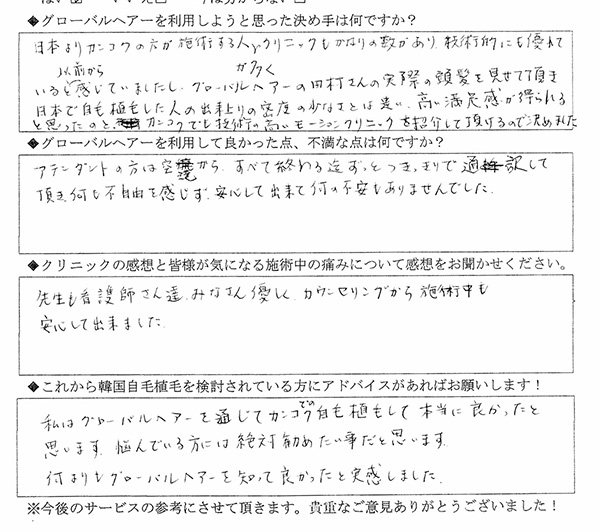 ◆グローバルヘアーを利用しようと思った決め手は何ですか？
日本よりカンコクの方が施術する人やクリニックもかなりの数があり、技術的にも優れて
以前から が多く
いると感じていましたし、グローバルヘアーの田村さんの実際の頭髪を見せて頂き
日本で自毛植毛した人の出来上りの密度の少なさとは違い、高い満足感が得られる
と思ったのと、カンコクでも技術の高いモーションクリニックを紹介して頂けるので決めました
◆グローバルヘアーを利用して良かった点、不満な点は何ですか？
アテンダントの方は空港から、すべて終わる迄ずっとつきっきりで通訳して
頂き何も不自由を感じず、安心して出来て何の不安もありませんでした。
◆クリニックの感想と皆様が気になる施術中の痛みについて感想をお聞かせください。
先生も看護師さん達、みなさん優しく、カウンセリングから施術中も
安心して出来ました。
◆これから韓国自毛植毛を検討されている方にアドバイスがあればお願いします！
私はグローバルヘアーを通じてカンコクでの自毛植毛して本当に良かったと
思います。悩んでいる方には絶対勧めたい事だと思います。
何よりもグローバルヘアーを知って良かったと実感しました。
※今後のサービスの参考にさせて頂きます。貴重なご意見ありがとうございました！